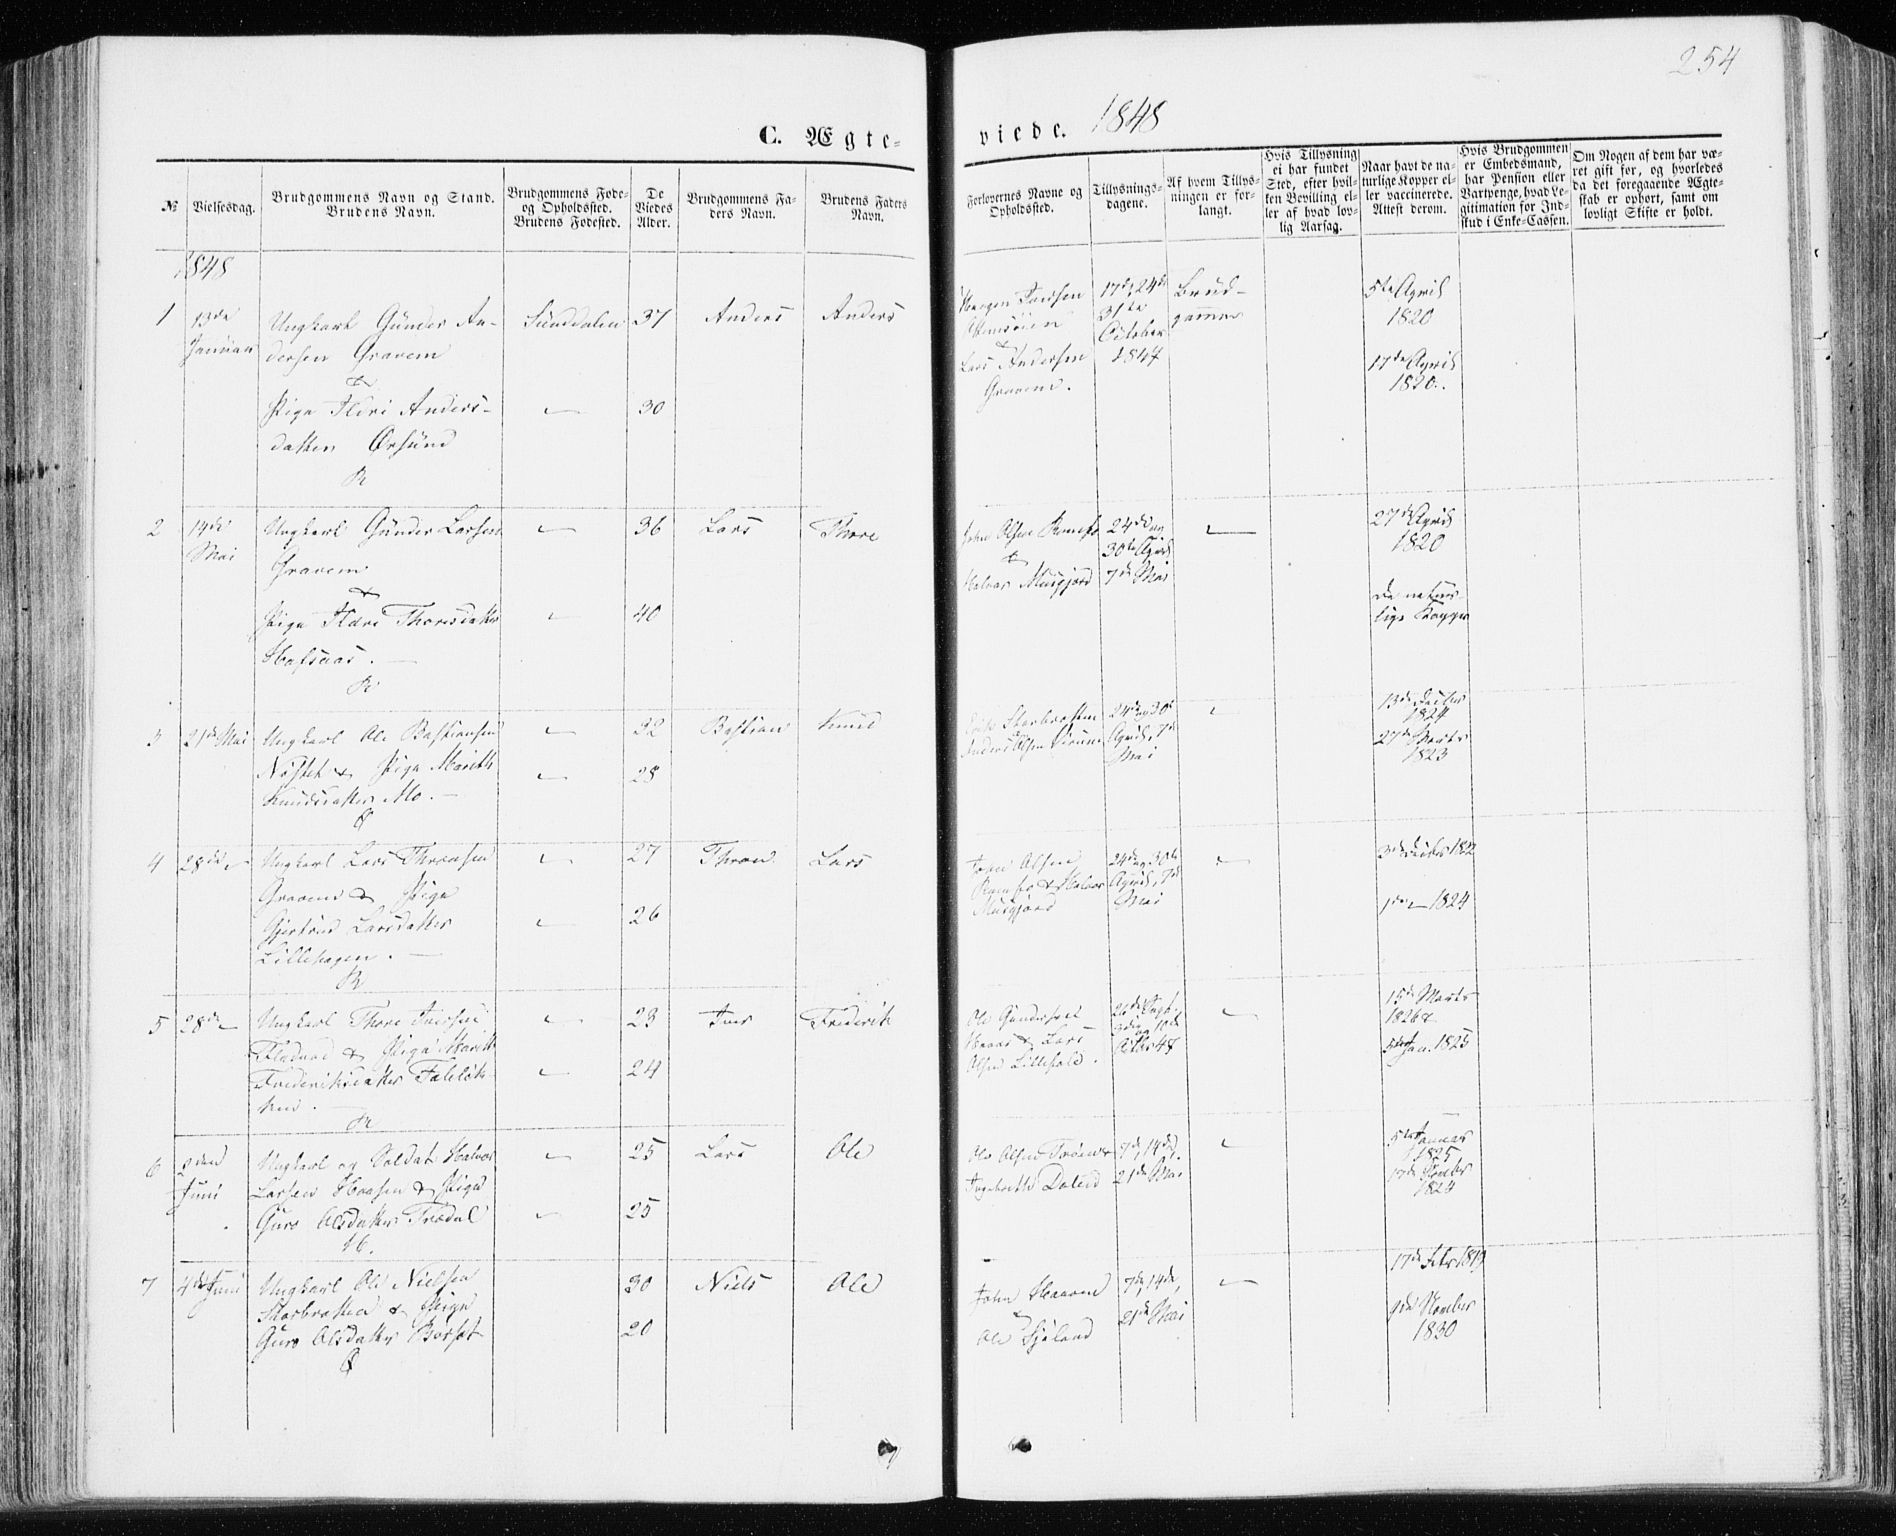 254
C. Ægte-
viede. 1848
№
Vielsesdag.
Brudgommens Navn og Stand.
Brudens Navn.
Brudgommens Føde-
og Opholdssted.
Brudens Fødested.
De
Viedes
Alder.
Brudgommens Fa-
ders Navn.
Brudens Faders
Navn.
Forlovernes Navne og
Opholdssted.
Tillysnings-
dagene.
Af hvem Tillys-
ningen er for-
langt.
Hvis Tillysning
ei har fundet
Sted, efter hvil-
ken Bevilling el-
ler af hvad lov-
lig Aarsag.
Naar havt de na-
turlige Kopper el-
ler vaccinerede.
Attest derom.
Hvis Brudgommen
er Embedsmand,
har Pension eller
Vartpenge, hvad Le-
gitimation for Ind-
skud i Enke-Cassen.
Om Nogen af dem har væ-
ret gift før, og hvorledes
da det foregaaende Ægte-
skab er ophørt, samt om
lovligt Skifte er holdt.
1848
1
13de
Januar
Ungkarl Gunder An-
dersen Gravem
&
Pige Ildri Anders-
datter Ørsund
Sunddalen
37
30
Anders
Anders
Iversen
Lars Andersen
Gravem.
17de, 24de
31te
October
1847
Brud-
gommen
5te April
1820
17de April
1820.
2
14de
Mai
Ungkarl Gunder Larsen
Gravem
&
Pige Ildri Thoresdatter
Hafsaas.
36
40
Lars
Thore
John Olsen Romfo
&
Halvor Musgjerd
24de og
30te April
7de Mai
27de April
1820
De natur-
lige Kopper
3
21de Mai
Ungkarl Ole Bastiansen
Nøstet & Pige Marith
Knudsdatter Mo.
32
28
Bastian
Knud
Erik Storbrotten
Anders Olsen
24de og 30te
April, 7de
Mai
13de
1824
27de Marts
1823
4
28de
Ungkarl Lars Thronsen
Gravem & Pige
Gjertrud Larsdatter
Lillehagen.
27
26
Thron
Lars
John Olsen
Romfo & Halvor
Musgjerd
24de og 30te
April, 7de
Mai
3de 1822
1de 1824
5
28de
Ungkarl Thore Iversen
Fladvad & Pige Marith
Frederiksdatter
23
24
Iver
Frederik
Ole Gundersen
& Lars
Olsen Lillefale.
15de Marts
1826 &
5te Jan. 1825
6
2den
Juni
Ungkarl og Soldat Halvor
Larsen Hoaasen & Pige
Guro Olsdatter Trædal
25
25
Lars
Ole
Ole Olsen
Ingebrigt
7de, 14de,
21de Mai
5te Januar
1825
17de
1824
7
4de Juni
Ungkarl Ole Nielsen
Storbrotten & Pige
Guro Olsdatter Børset
30
20
Niels
Ole
John Hoaaven
&
Ole Sjøland
7de, 14de,
21de Mai
17de Febr 1819
9de
1830